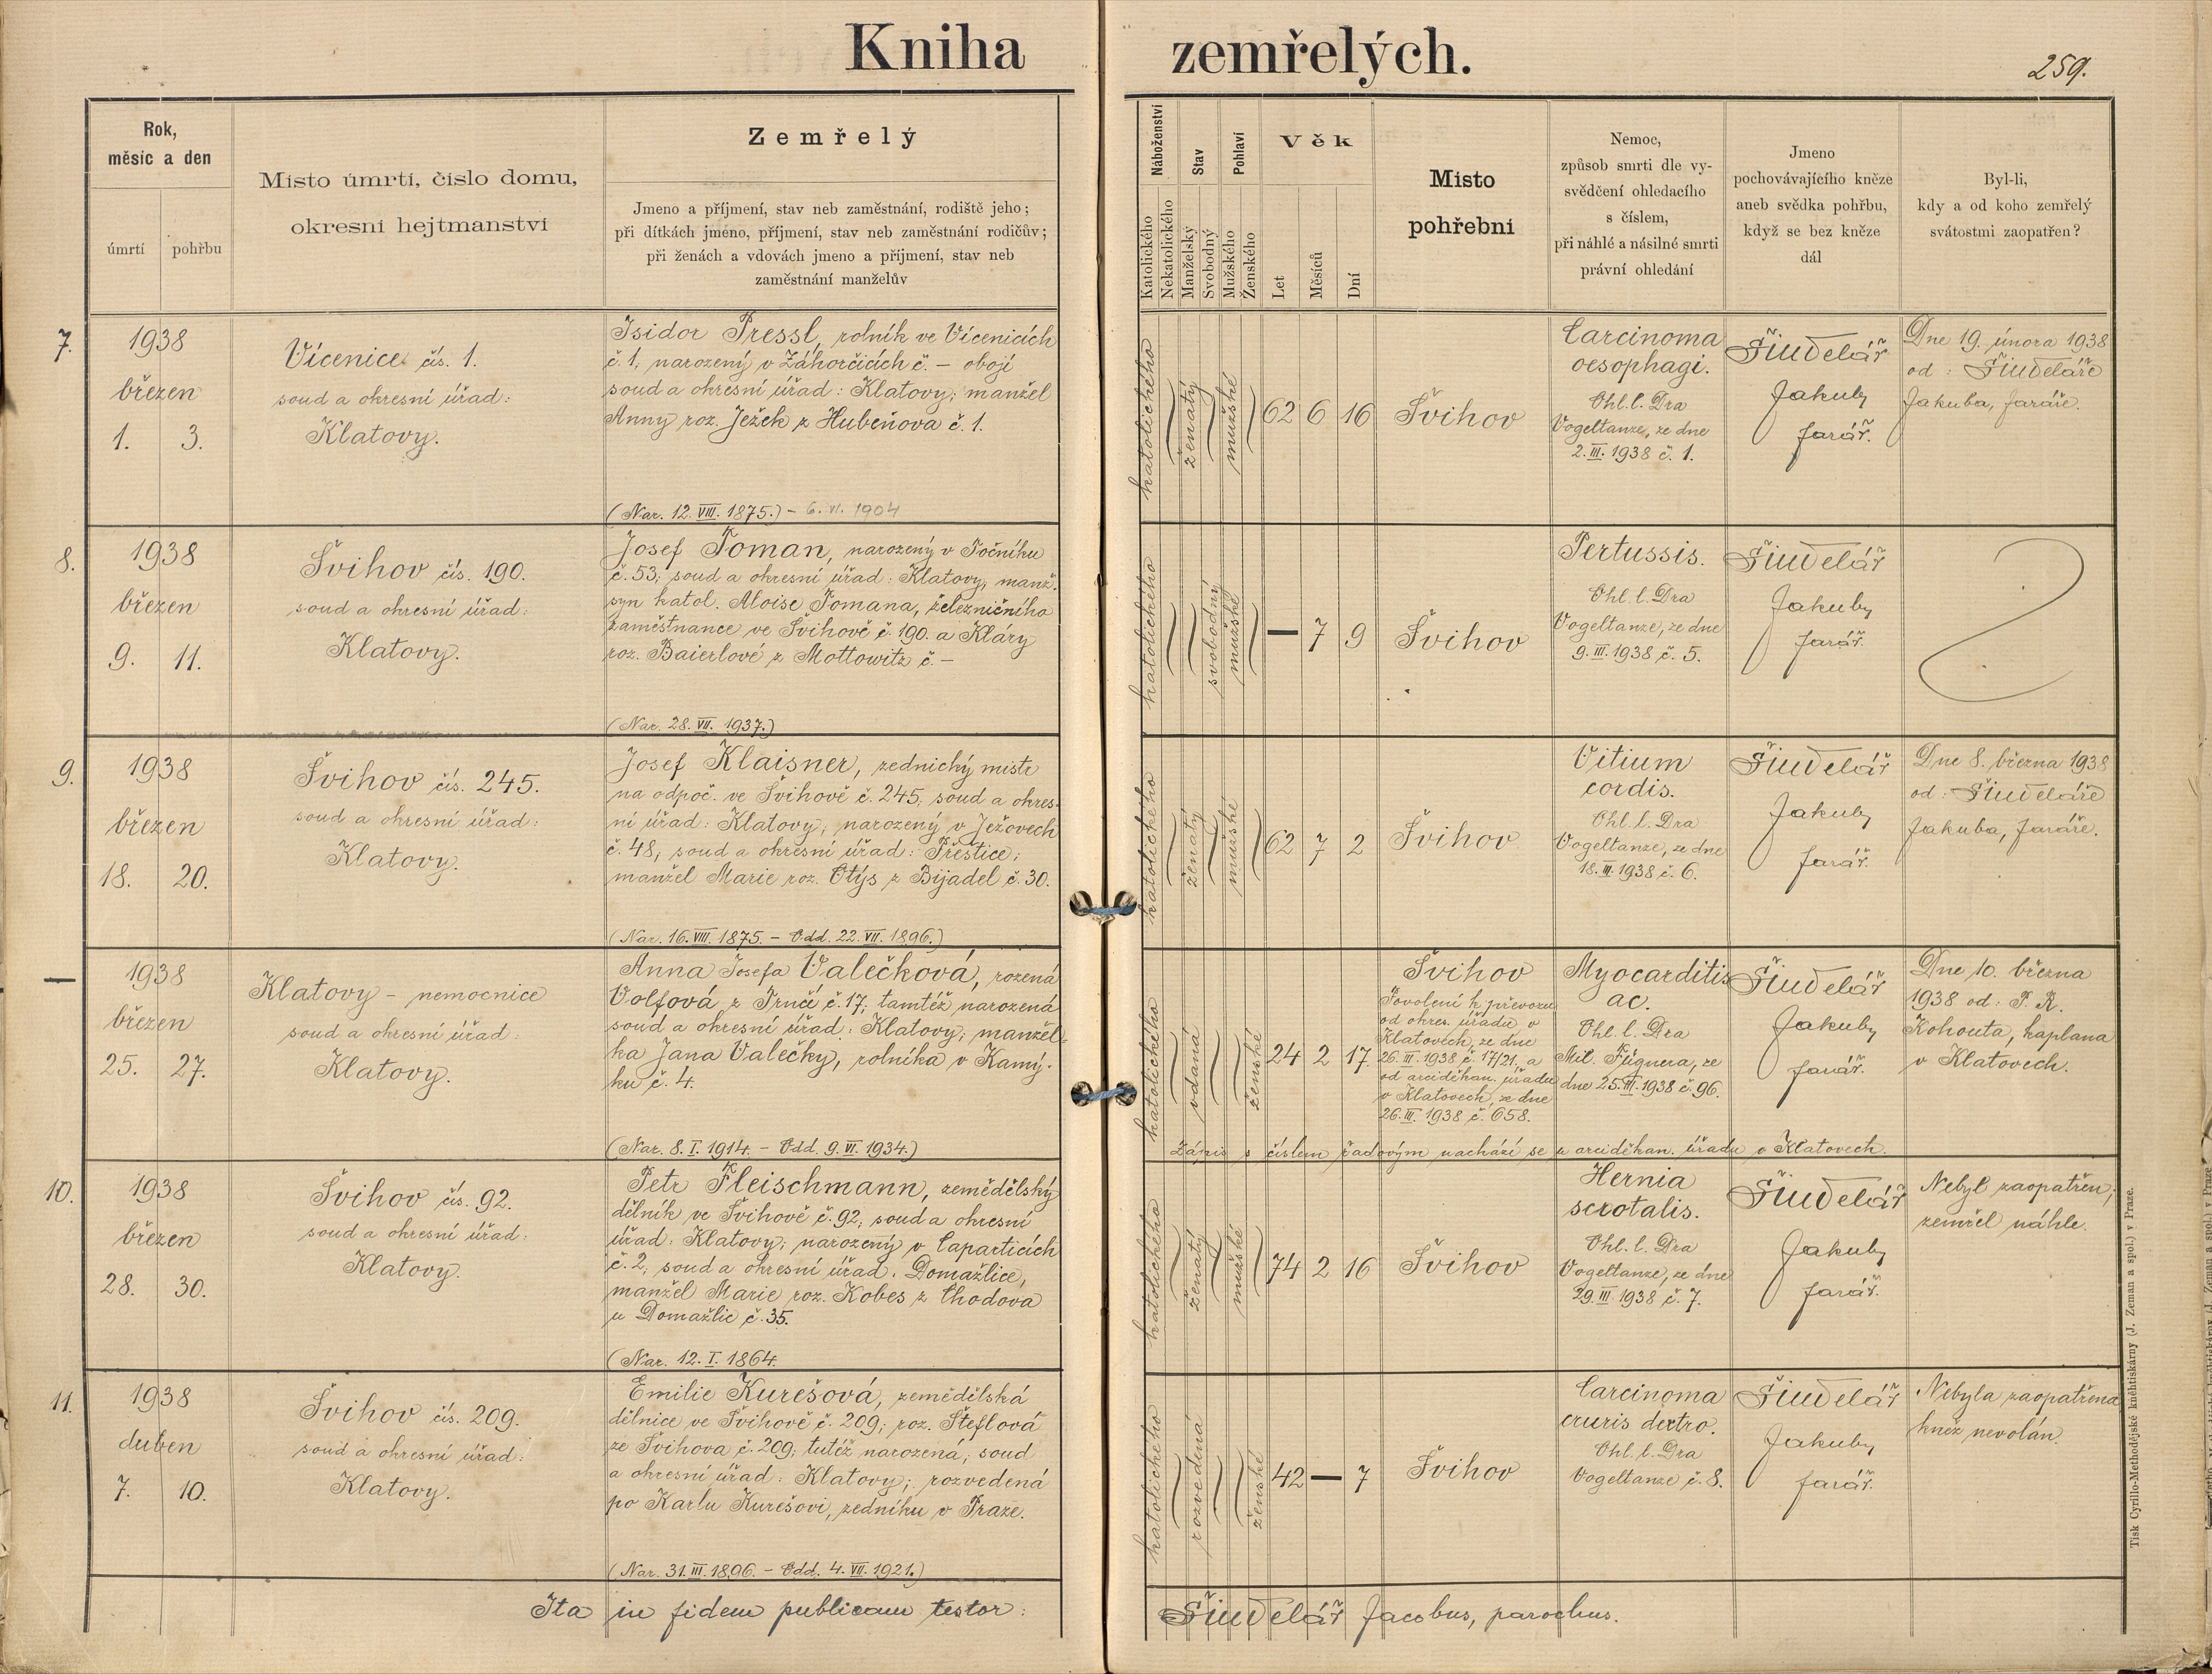 Kniha zemřelých.
259.
Rok,
měsíc a den
úmrtí pohřbu
Místo úmrtí, číslo domu,
okresní hejtmanství
Zemřelý
Jmeno a příjmení, stav neb zaměstnání, rodiště jeho;
při dítkách jméno, příjmení, stav neb zaměstnání rodičův;
při ženách a vdovách jmeno a příjmení, stav neb
zaměstnání manželův
Náboženství
Katolického
Nekatolického
Stav
Manželský
Svobodný
Pohlaví
Mužského
Ženského
Věk
Let
Měsíců
Dní
Místo
pohřební
Nemoc,
způsob smrti dle vy-
svědčení ohledacího
s číslem,
při náhlé a násilné smrti
právní ohledání
Jmeno
pochovávajícího kněze
aneb svědka pohřbu,
když se bez kněze
dál
Byl-li,
kdy a od koho zemřelý
svátostmi zaopatřen?
7.
1938
březen
1. 3.
Vícenice čís. 1.
soud a okresní úřad:
Klatovy.
Isidor Pressl, rolník ve Vícenicích
č. 1, narozený v Záhorčicích č. – obojí
soud a okresní úřad: Klatovy; manžel
Anny roz. Ježek z Hubeňova č. 1.
(Nar. 12. VIII. 1875.) – 6. VI. 1904
katolického
ženatý
mužské
62 6 16
Švihov
Carcinoma
oesophagi.
Ohl. l. Dra
Vogeltanze, ze dne
2. III. 1938 č. 1.
Šindelář
Jakub,
farář.
Dne 19. února 1938
od: Šindeláře
Jakuba, faráře.
8.
1938
březen
9. 11.
Švihov čís. 190.
soud a okresní úřad:
Klatovy.
Josef Toman, narozený v Točníku
č. 53; soud a okresní úřad: Klatovy, manž.
syn katol. Aloise Tomana, železničního
zaměstnance ve Švihově č. 190. a Kláry
roz. Baierlové z Mottowitz č. –
(Nar. 28. VII. 1937.)
katolického
svobodný
mužské
— 7 9
Švihov
Pertussis.
Ohl. l. Dra
Vogeltanze, ze dne
9. III. 1938 č. 5.
Šindelář
Jakub,
farář.
9.
1938
březen
18. 20.
Švihov čís. 245.
soud a okresní úřad:
Klatovy.
Josef Klaisner, zednický mistr
na odpoč. ve Švihově č. 245, soud a okres-
ní úřad: Klatovy; narozený v Ježovech
č. 48; soud a okresní úřad: Přeštice;
manžel Marie roz. Otýs z Bijadel č. 30.
(Nar. 16. VIII. 1875. – Odd. 22. VII. 1896.)
katolického
ženatý
mužské
62 7 2
Švihov
Vitium
cordis.
Ohl. l. Dra
Vogeltanze, ze dne
18. III. 1938 č. 6.
Šindelář
Jakub,
farář.
Dne 8. března 1938
od: Šindeláře
Jakuba, faráře.
—
1938
březen
25. 27.
Klatovy – nemocnice
soud a okresní úřad:
Klatovy.
Anna Josefa Valečková, rozená
Volfová z Trnčí č. 17, tamtéž narozená
soud a okresní úřad: Klatovy; manžel-
ka Jana Valečky, rolníka v Kamý-
ku č. 4.
(Nar. 8. I. 1914. – Odd. 9. VI. 1934.)
katolického
vdaná
ženské
24 2 17.
Švihov
Povolení k převozu
od okres. úřadu v
Klatovech, ze dne
26. III. 1938 č. 17/21, a
od arciděkan. úřadu
v Klatovech, ze dne
26. III. 1938 č. 658.
Myocarditis
ac.
Ohl. l. Dra
Mil. Fügnera, ze
dne 25. III. 1938 č. 96.
Šindelář
Jakub,
farář.
Dne 10. března
1938 od: P. R.
Kohouta, kaplana
v Klatovech.
Zápis s číslem řadovým nachází se u arciděkan. úřadu v Klatovech.
10.
1938
březen
28. 30.
Švihov čís. 92.
soud a okresní úřad:
Klatovy.
Petr Fleischmann, zemědělský
dělník ve Švihově č. 92; soud a okresní
úřad: Klatovy; narozený v Caparticích
č. 2, soud a okresní úřad: Domažlice,
manžel Marie roz. Kobes z Chodova
u Domažlic č. 35.
(Nar. 12. I. 1864.
katolického
ženatý
mužské
74 2 16
Švihov
Hernia
scrotalis.
Ohl. l. Dra
Vogeltanze, ze dne
29. III. 1938 č. 7.
Šindelář
Jakub,
farář.
Nebyl zaopatřen;
zemřel náhle.
11.
1938
duben
7. 10.
Švihov čís. 209.
soud a okresní úřad:
Klatovy.
Emilie Kurešová, zemědělská
dělnice ve Švihově č. 209; roz. Šteflová
ze Švihova č. 209; tutéž narozená; soud
a okresní úřad: Klatovy; rozvedená
po Karlu Kurešovi, zedníku v Praze.
(Nar. 31. III. 1896. – Odd. 4. VII. 1921.)
katolického
rozvedená
ženské
42 — 7
Švihov
Carcinoma
cruris dextro.
Ohl. l. Dra
Vogeltanze č. 8.
Šindelář
Jakub,
farář.
Nebyla zaopatřena
kněz nevolán.
Ita in fidem publicam testor: Šindelář Jacobus, parochus.
Tisk Cyrillo-Methodějské knihtiskárny (J. Zeman a spol.) v Praze.